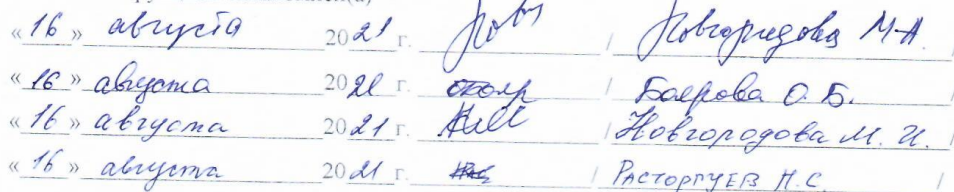 «16» августа 2021 г. / Новгородова М.А.
«16» августа 2021 г. / Боярова О.Б. /
«16» августа 2021 г. / Новгородова М.И.
«16» августа 2021 г. / Расторгуев Н.С. /